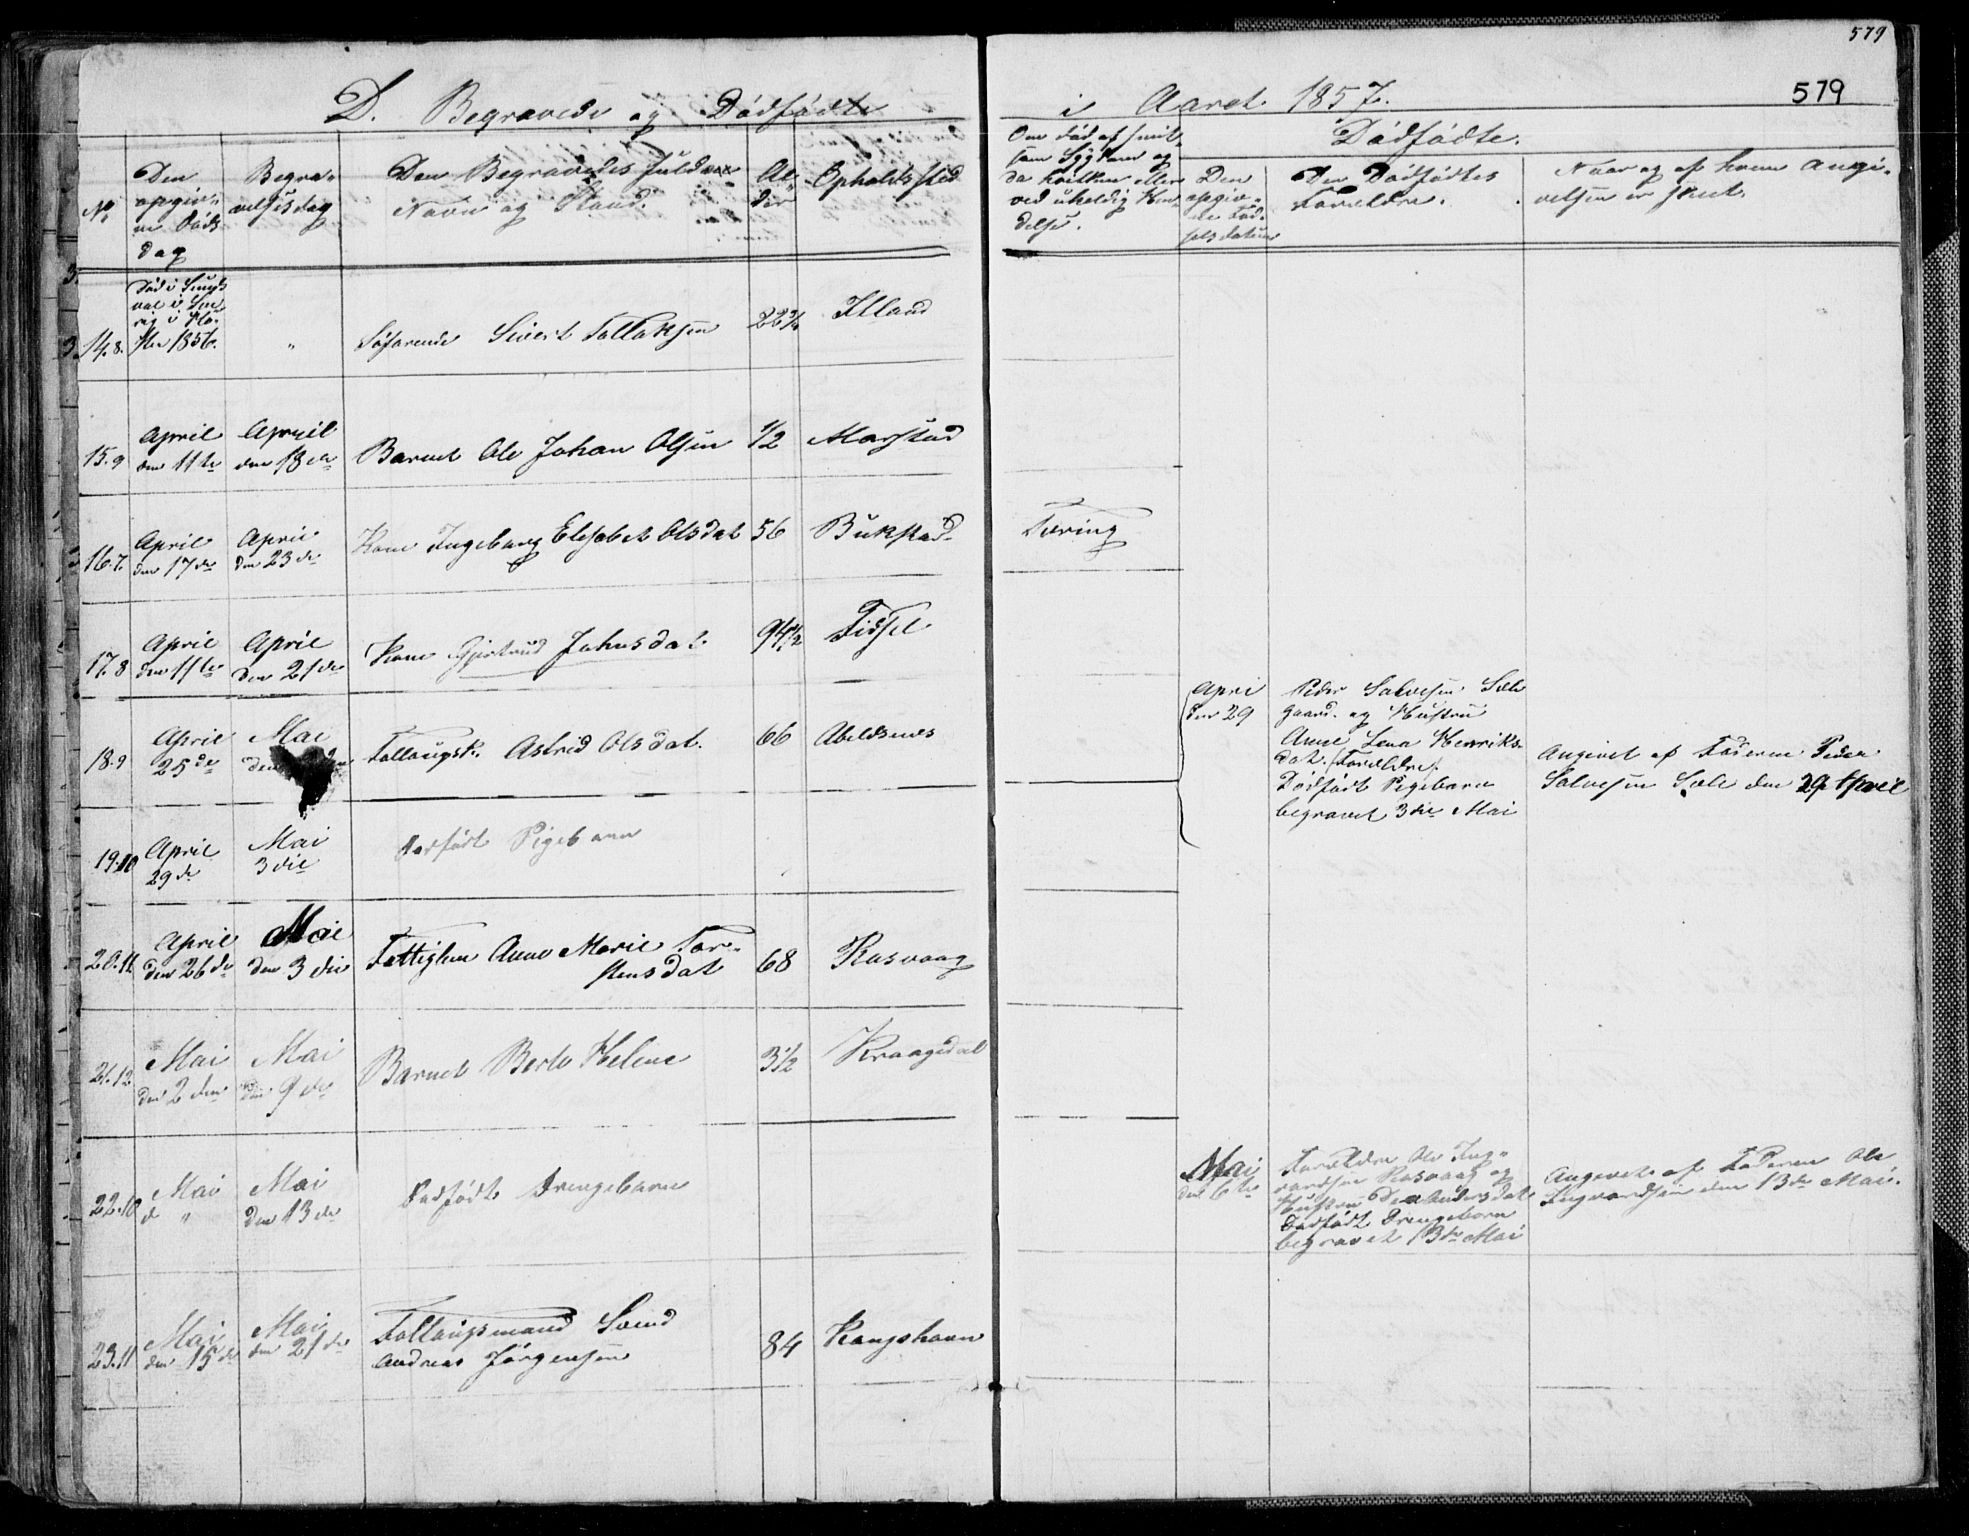 579
579
D. Begravede og Dødfødte
i Aaret 1857.
No.
Den
opgiv-
ne Døds
dag
Begra-
velsesdag
Den Begravedes fulde
Navn og Stand.
Al-
der
Opholdssted
Om død af smit-
som Sygdom og
da hvilken eller
ved uheldig Hæn-
delse.
Dødfødte.
Den
opgiv-
ne Fød-
selsdatum
Den Dødfødtes
Forældre.
Naar og af hvem Angi-
velsen er skeet.
14.8. Død i
1856. " Søfarende Sivert Tollaksen 22 Itland
15.9 April April
den 11te den 18de Barnet Ole Johan Olsen 1/2 Marstad
16.7. April April
den 17de den 23de Kone Ingeborg Elisabet Olsdat 56 Bukstad Tæring
17.8 April April
den 11te den 21de Kone Gjertrud Johnsdat. 94 1/2 Fidsel
18.9 April Mai
25de den Fattigsk. Astrid Olsdat. 66 Abeldsnes
April
den 29
Peder Salvesen Sæle
Gaard. og Hustru
Anne Lena Henriks-
dat. Forældre.
Dødfødt Pigebarn
begravet 3die Mai
Angivet af Faderen Peder
Salvesen Sæle den 29 April
19.10 April Mai
29de 3die Dødfødt Pigebarn
20.11 April Mai
den 26de den 3die Fattiglem Anne Marie Tor-
stensdat 68 Rasvaag
21.12 Mai Mai
den 2den den 9de Barnet Berte Helene 3 1/2 Kraagedal
22.10 Mai Mai
d " den 13de Dødfødt Drengebarn
Mai
den 6te
Forældre Ole Ing-
vardsen Rasvaag og
Hustru Andersdat
Dødfødt Drengebarn
begravet 13de Mai
Angivet af Faderen Ole
Ingvardsen den 13de Mai.
23.11 Mai Mai
den 15de den 21de Fattigsmand Svend
Andreas Jørgensen 84 Kongshavn